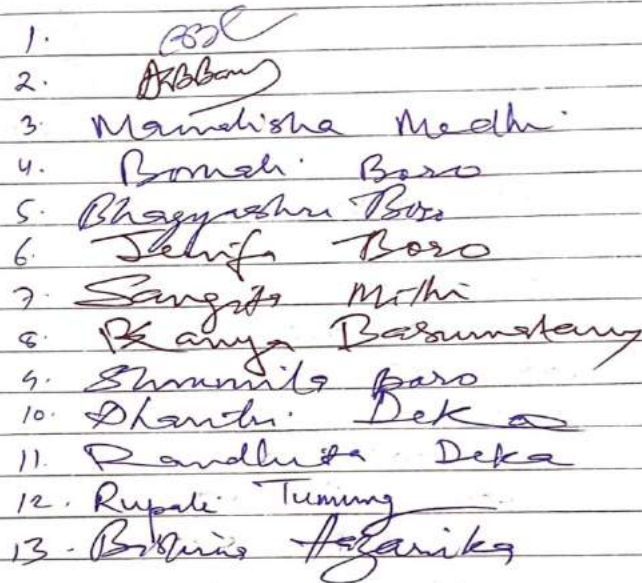 1.
2.
3. Mamalisha Medhi
4. Bornali Boro
5. Bhagyashri Boro
6. Jenifa Boro
7. Sangita Mithi
8. Kanya Basumatary
9. Shrumila Boro
10. Dhanthi Deka
11. Randhita Deka
12. Rupali Tumung
13. Hazarika